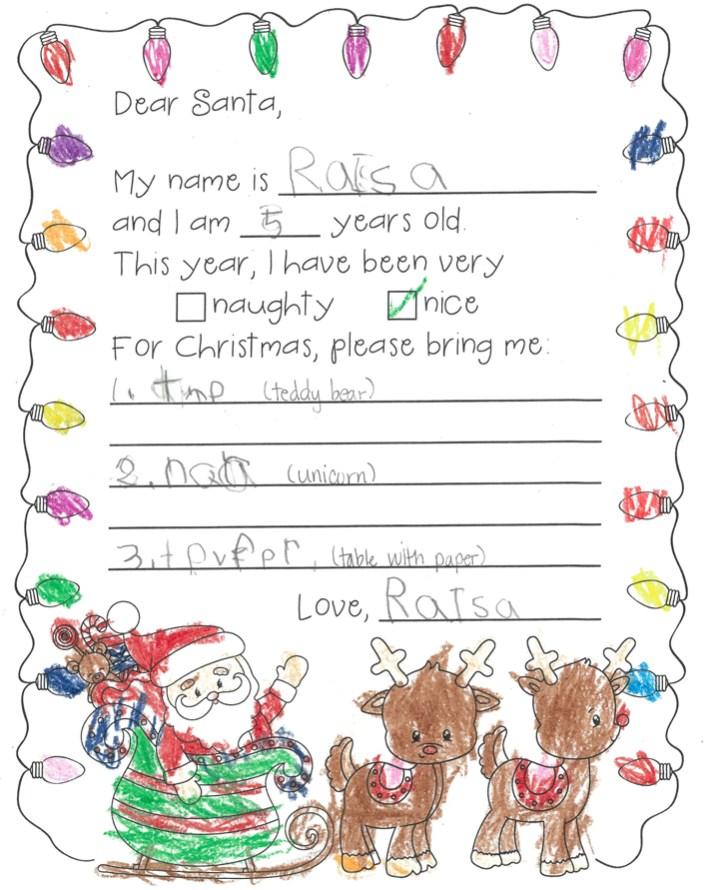 Dear Santa,
My name is Raisa
and I am 5 years old.
This year, I have been very
naughty nice
For Christmas, please bring me:
1. (teddy bear)
2. nah (unicorn)
3. tpvfpr (table with paper)
Love, Raisa